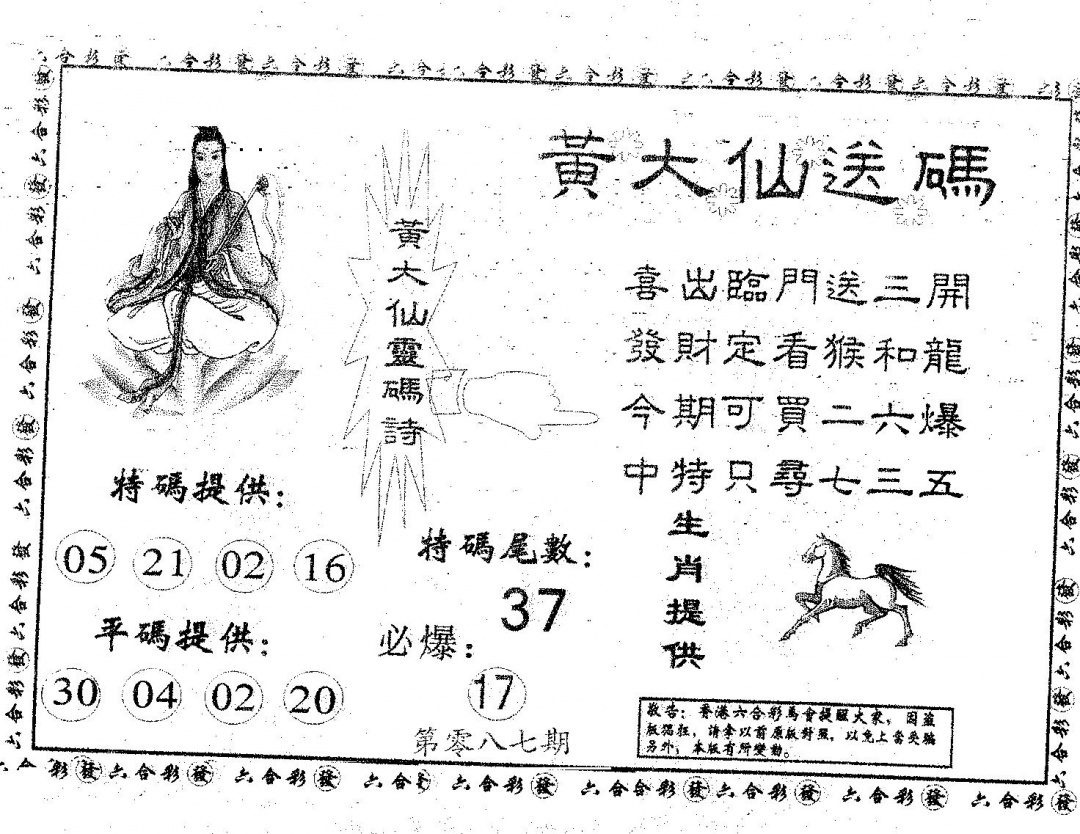 六合彩發六合彩發六合彩發六合彩發六合彩發
黃大仙送碼
黃大仙靈碼詩
喜出臨門送三開
發財定看猴和龍
今期可買二六爆
中特只尋七三五
特碼提供：
05 21 02 16
平碼提供：
30 04 02 20
特碼尾數：
37
必爆：
17
第零八七期
生肖提供
敬告：香港六合彩馬會提醒大家，因盜
版猖狂，請拿以前原版對照，以免上當受騙
另外：本版有所變動。
六合彩發六合彩發六合彩發六合彩發六合彩發